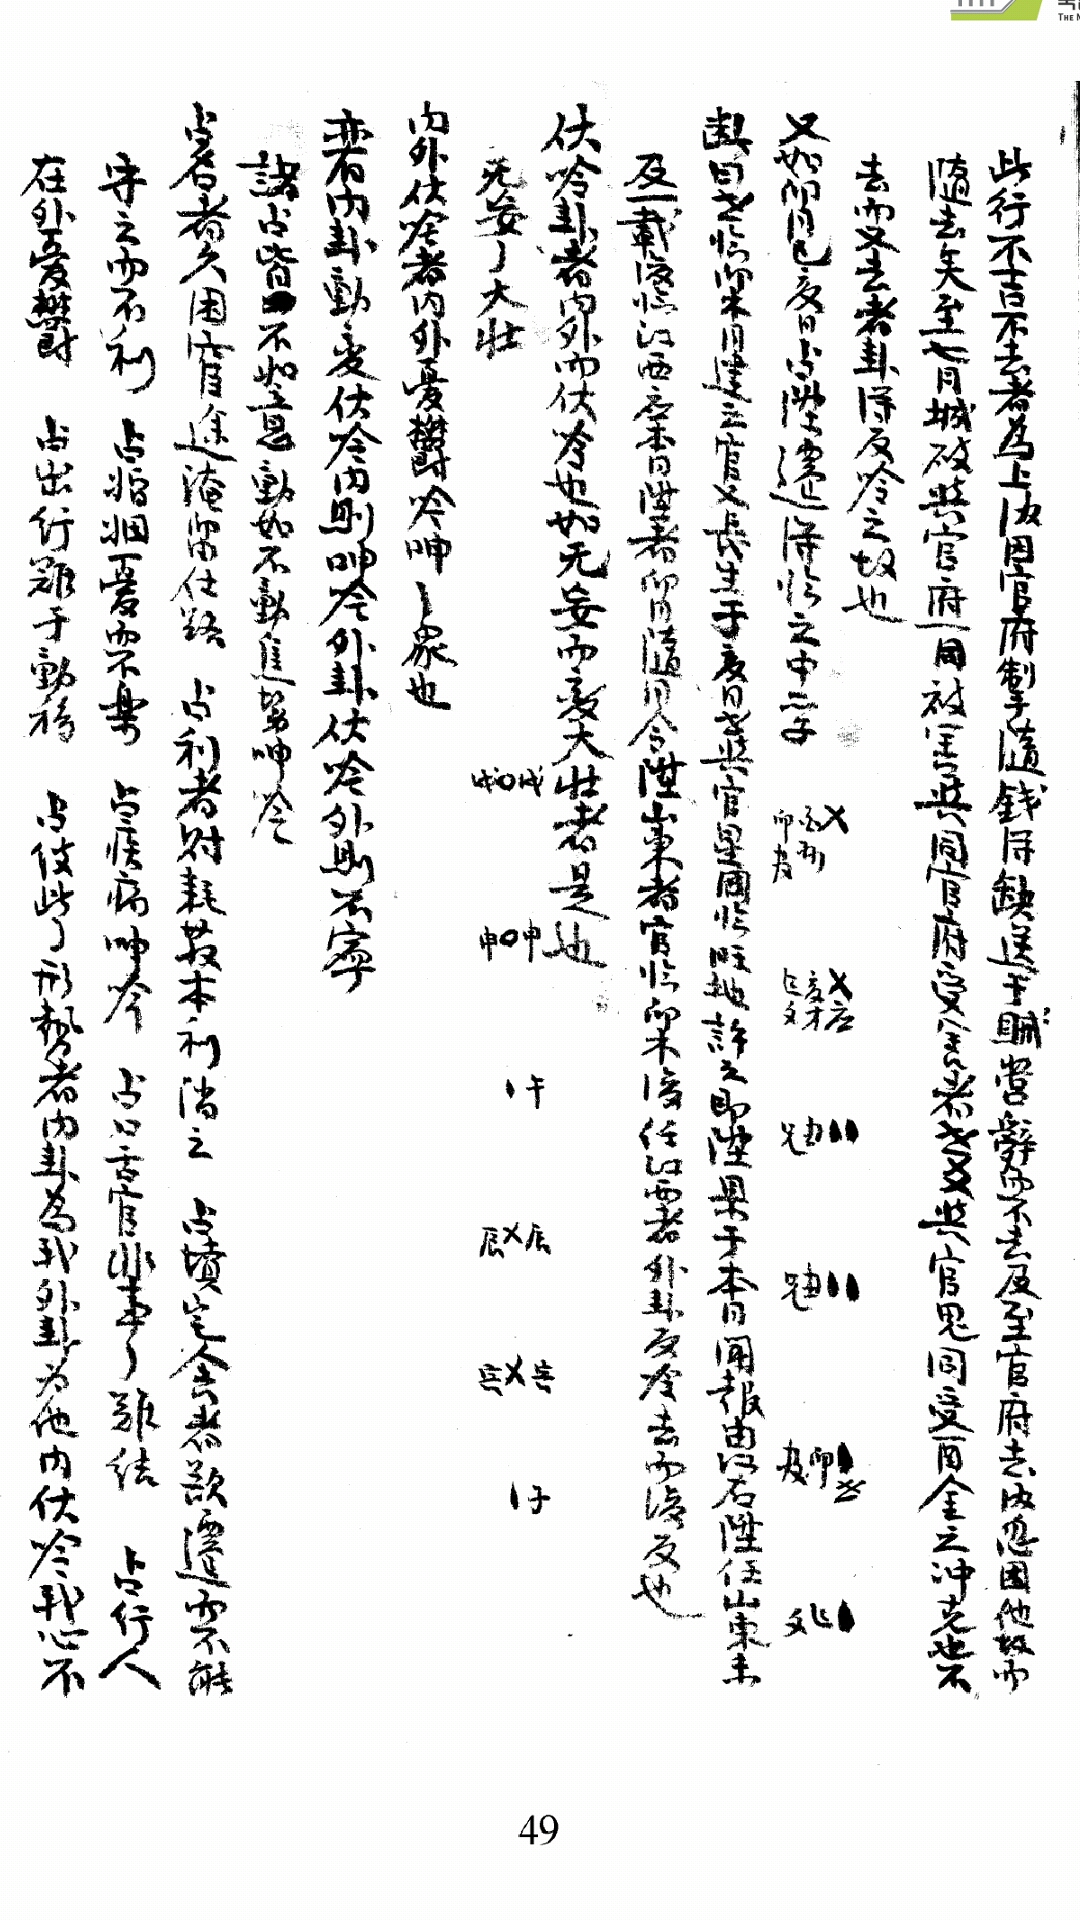 此行不吉不去者為上後因官府制掣隨錢得缺送于賊營辭而不去及至官府去後忽因他故而
隨去矣至七月城破與官府同被害與同官府受害者世爻與官鬼同受酉金之沖克也不
去而又去者卦得反吟之故也
又如卯月己亥日占陞遷得臨之中孚
酉
卯 才
亥 才 应
丑
丑
卯 世
巳
斷曰世臨卯木月建之官又長生于亥日世與官星同臨旺地許之即陞果于本月聞報由江右陞任山東未
及一載後臨江西 陞者卯月隨月令陞山東者官臨卯木復任江西者外卦反吟去而復反也
伏吟卦者內外而伏吟也如无妄而變大壯者是也
无妄 大壯
戌〇戌
申〇申
午
辰X辰
寅X寅
子
內外伏吟者內外憂鬱吟呻之象也
若內卦動變伏吟內則呻吟外卦伏吟外則不寧
諸占皆不如意動如不動進 呻吟
占名者久困宦途淹留仕路 占利者財耗散本利消之 占墳宅舍者欲遷而不能
守之而不利 占婚姻憂而不樂 占疾病呻吟 占口舌官非事 難結 占行人
在外憂鬱 占出行難于動移 占彼此 形勢者內卦為我外卦为他內伏吟我心不
49